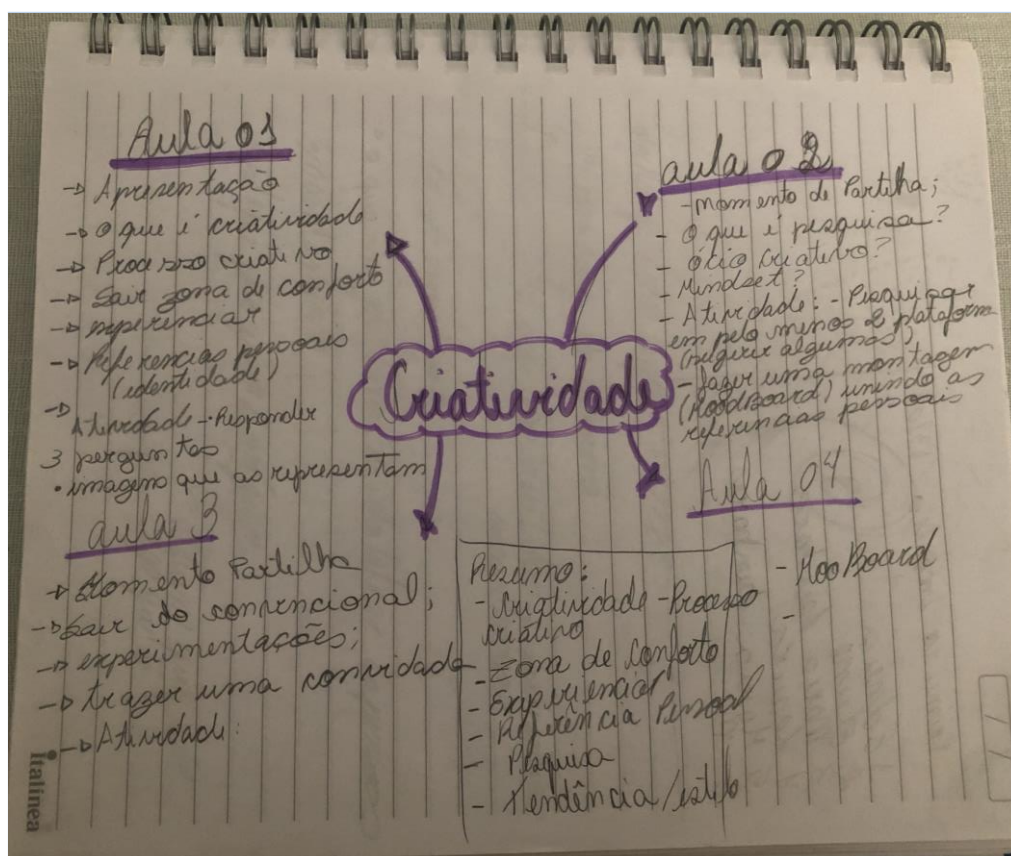 Aula 01
-> Apresentação
-> O que é criatividade
-> Processo criativo
-> Sair zona de conforto
-> experienciar
-> Referencias pessoais
(identidade)
->
Atividade - Responder
3 perguntas
• imagens que as representam
aula 02
- Momento de Partilha;
- O que é pesquisa?
- Ócio Criativo?
- Mindset?
- Atividade: - Pesquisar
em pelo menos 2 plataform
(sugerir algumas)
- fazer uma montagem
(MoodBoard) unindo as
referencias pessoais
Criatividade
aula 3
-> Momento Partilha
-> Sair do convencional;
-> experimentações;
-> trazer uma convidada
-> Atividade:
Resumo:
- Criatividade - Processo
criativo
- Zona de Conforto
- Experienciar
- Referência Pessoal
- Pesquisa
- Tendência/estilo
Aula 04
- MooBoard
-
italinea